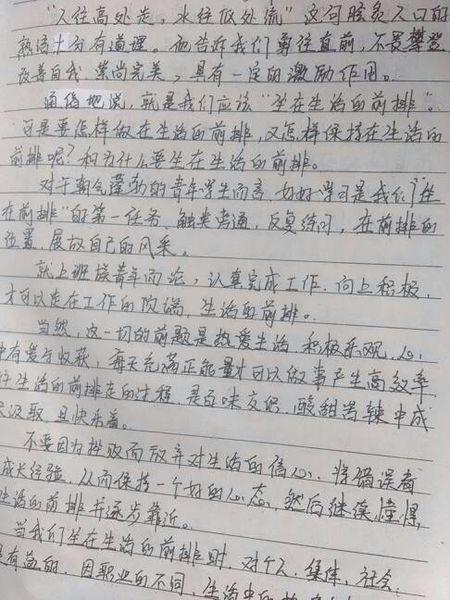 “人往高处走，水往低处流”这句脍炙人口的
熟语十分有道理。他告诉我们勇往直前，不畏攀登
改善自我，崇尚完美，具有一定的激励作用。
通俗地说，就是我们应该“坐在生活的前排”。
可是要怎样做在生活的前排，又怎样保持在生活的
前排呢？和为什么要坐在生活的前排。
对于朝气蓬勃的青年学生而言，好好学习是我们“坐
在前排”的第一任务，触类旁通，反复练习，在前排的
位置，展放自己的风采。
就上班族青年而论，认真完成工作，向上积极，
才可以走在工作的顶端，生活的前排。
当然，这一切的前题是热爱生活，积极乐观，心
中有爱有收获，每天充满正能量才可以做事产生高效率，
往生活的前排走的过程，是百味交织，酸甜苦辣中成
汲取，且快乐着。
不要因为挫败而放弃对生活的信心，将错误者
成长经验，从而保持一个好的心态，然后继续憧憬，
生活的前排并逐步靠近。
当我们坐在生活的前排时，对个人，集体，社会，
是有益的，因职业的不同，生活中的